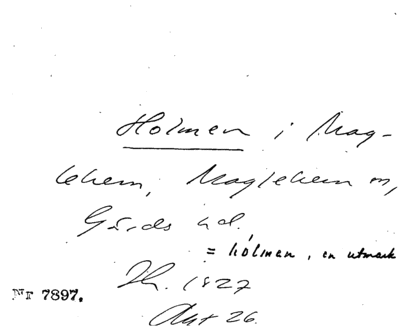 Holmen i Mag-
lehem, Maglehem sn,
Gärds hd.
= hólmen, en utmark
Nr 7897.
Th. 1827
Akt 26.